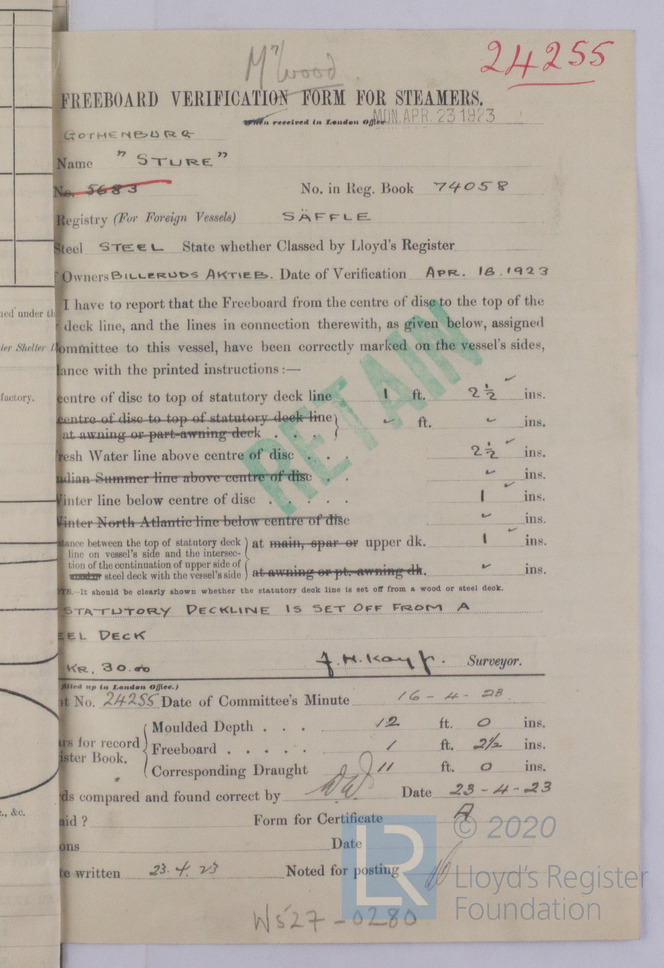 Mr Wood
24255
FREEBOARD VERIFICATION FORM FOR STEAMERS.
When received in London Office MON. APR. 23 1923
GOTHENBURG
Name "STURE"
No. 5683 No. in Reg. Book 74058
Registry (For Foreign Vessels) SÄFFLE
Steel STEEL State whether Classed by Lloyd's Register
Owners BILLERUDS AKTIEB. Date of Verification APR. 16. 1923
I have to report that the Freeboard from the centre of disc to the top of the
deck line, and the lines in connection therewith, as given below, assigned
Committee to this vessel, have been correctly marked on the vessel's sides,
ance with the printed instructions:—
centre of disc to top of statutory deck line 1 ft. 2½ ins.
centre of disc to top of statutory deck line
at awning or part-awning deck . . . ft. ins.
resh Water line above centre of disc . . . 2½ ins.
ndian Summer line above centre of disc . . ins.
Winter line below centre of disc . . . . . 1 ins.
Winter North Atlantic line below centre of disc ins.
stance between the top of statutory deck
line on vessel's side and the intersec-
tion of the continuation of upper side of
steel deck with the vessel's side
at main, spar or upper dk. 1 ins.
at awning or pt. awning dk. ins.
It should be clearly shown whether the statutory deck line is set off from a wood or steel deck.
STATUTORY DECKLINE IS SET OFF FROM A
EEL DECK
KR. 30.00 Surveyor.
filled up in London Office.)
t No. 24255 Date of Committee's Minute 16-4-23
Moulded Depth . . . 12 ft. 0 ins.
ars for record
ister Book.
Freeboard . . . . . 1 ft. 2½ ins.
Corresponding Draught 11 ft. 0 ins.
ds compared and found correct by Date 23-4-23
aid? Form for Certificate A
ons Date
te written 23.4.23 Noted for posting
W527-0280
RETAIN
ned under th
ler Shelter D
factory.
., &c.
LR
© 2020
Lloyd's Register
Foundation